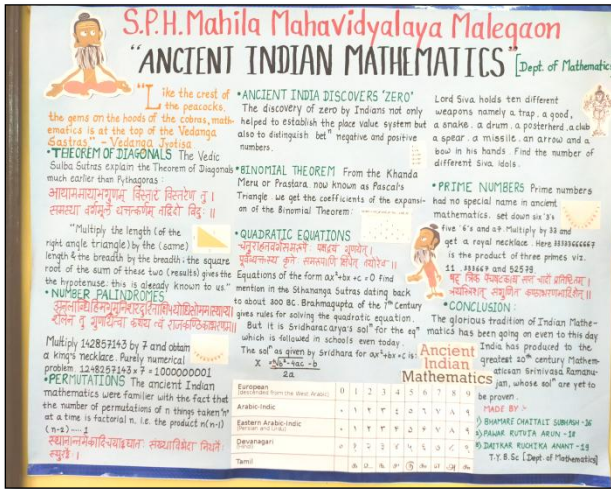 S.P.H. Mahila Mahavidyalaya Malegaon
"ANCIENT INDIAN MATHEMATICS" [Dept. of Mathematic
"Like the crest of
the peacocks,
the gems on the hoods of the cobras, math-
ematics is at the top of the Vedanga
Sastras" – Vedanga Jyotisa
• THEOREM OF DIAGONALS The Vedic
Sulba Sutras explain the Theorem of Diagonals
much earlier than Pythagoras:
"Multiply the length (of the
right angle triangle) by the (same)
length & the breadth by the breadth: the square
root of the sum of these two (results) gives the
the hypotenuse: this is already known to us."
• NUMBER PALINDROMES
Multiply 142857143 by 7 and obtain
a king's necklace. Purely numerical
problem 1248257143 x 7 = 1000000001
• PERMUTATIONS The ancient Indian
mathematics were familiar with the fact that
the number of permutations of n things taken 'n'
at a time is factorial n, i.e. the product n(n-1)
(n-2) ---- 1
• ANCIENT INDIA DISCOVERS 'ZERO'
The discovery of zero by Indians not only
helped to establish the place value system but
also to distinguish betn negative and positive
numbers.
• BINOMIAL THEOREM From the Khanda
Meru or Prastara, now known as Pascal's
Triangle we get the coefficients of the expansi-
on of the Binomial Theorem:
• QUADRATIC EQUATIONS
Equations of the form ax²+bx+c=0 find
mention in the Sthananga Sutras dating back
to about 300 BC. Brahmagupta of the 7th Century
gives rules for solving the quadratic equation.
But it is Sridharacarya's soln for the eqn
which is followed in schools even today.
The soln as given by Sridhara for ax²+bx=c is:
x = √b²-4ac - b
2a
Lord Siva holds ten different
weapons namely a trap, a good,
a snake, a drum, a posterherd, a club
a spear, a missile, an arrow and a
bow in his hands. Find the number of
different Siva Idols.
• PRIME NUMBERS Prime numbers
had no special name in ancient
mathematics. set down six '3's
five '6's and a 7. Multiply by 33 and
get a royal necklace. Here 33333666667
is the product of three primes viz.
11, 333667 and 52579.
• CONCLUSION:
The glorious tradition of Indian Mathe-
matics has been going on even to this day
India has produced to the
greatest 20th century Mathem-
aticsan Srinivasa Ramanu-
jan, whose soln are yet to
be proven.
MADE BY :-
1) BHAMARE CHAITALI SUBHASH - 26
2) PAWAR RUTUJA ARUN - 18
3) DAITKAR RUCHIKA ANANT - 19
T.Y. B.Sc [Dept. of Mathematics]
Ancient
Indian
Mathematics
European 0 1 2 3 4 5 6 7 8 9
(descended from the West Arabic)
Arabic-Indic
Eastern Arabic-Indic
(Persian and Urdu)
Devanagari
(Hindi)
Tamil